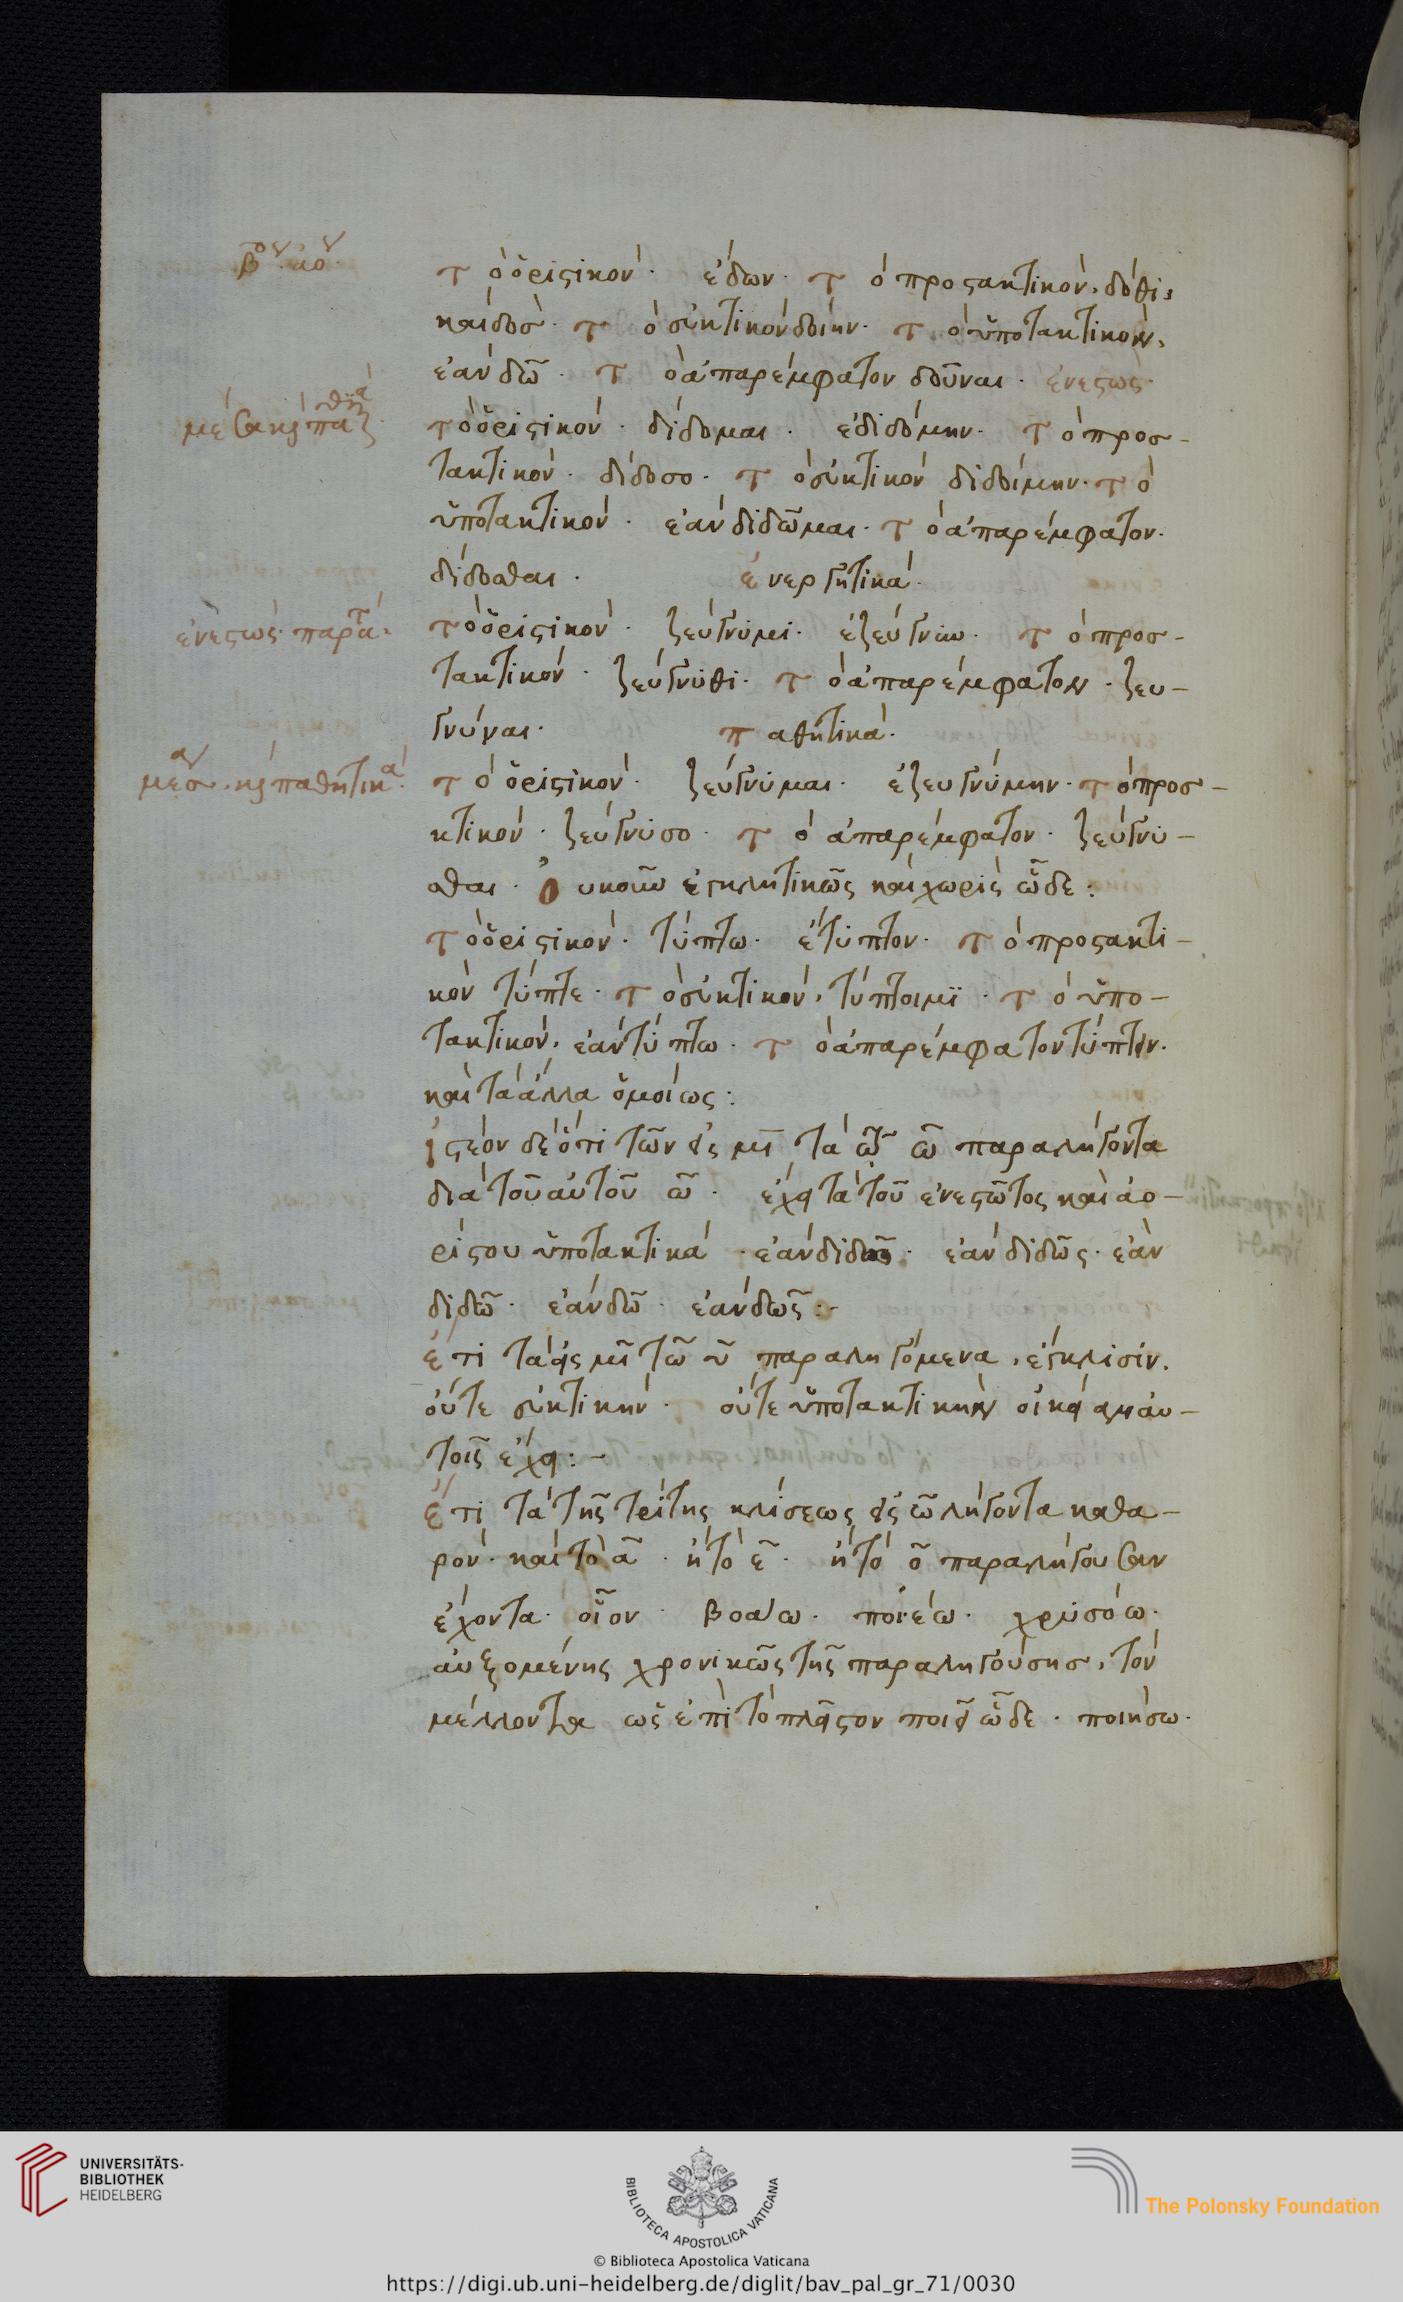 β̄ου ἀορ
τὸ ὁριστικόν· ἔδων· τὸ προστακτικόν, δόθι,
καὶ δός· τὸ εὐκτικὸν δοίην· τὸ ὑποτακτικόν,
ἐὰν δῶ· τὸ ἀπαρέμφατον δοῦναι· ἐνεστώς·
μέσα καὶ παθητικά
τὸ ὁριστικόν· δίδομαι· ἐδιδόμην· τὸ προσ-
τακτικόν· δίδοσο· τὸ εὐκτικὸν διδοίμην· τὸ
ὑποτακτικόν· ἐὰν διδῶμαι· τὸ ἀπαρέμφατον·
δίδοσθαι· ἐνεργητικά·
ἐνεστώς· παρατα
τὸ ὁριστικόν· ζεύγνυμι· ἐζεύγνυν· τὸ προσ-
τακτικόν· ζεύγνυθι· τὸ ἀπαρέμφατον· ζευ-
γνύναι· παθητικά·
μέσα· καὶ παθητικά·
τὸ ὁριστικόν· ζεύγνυμαι· ἐζευγνύμην· τὸ προσ-
κτικόν· ζεύγνυσο· τὸ ἀπαρέμφατον· ζεύγνυ-
σθαι· Οὐκοῦν ἐγκλητικῶς καὶ χωρὶς ὧδε:
τὸ ὁριστικόν· τύπτω· ἔτυπτον· τὸ προστακτι-
κὸν τύπτε· τὸ εὐκτικόν, τύπτοιμι· τὸ ὑπο-
τακτικόν, ἐὰν τύπτω· τὸ ἀπαρέμφατον τύπτειν·
καὶ τὰ ἄλλα ὁμοίως:
ἰστέον δὲ ὅτι τῶν εἰς μῑ τὰ τῶ ω̄ παραλήγοντα
διὰ τοῦ αὐτοῦ ω̄· ἔχει τὰ τοῦ ἐνεστῶτος καὶ ἀο-
ρίστου ὑποτακτικά· ἐὰν διδῶ· ἐὰν διδῶς· ἐὰν
διδῶ· ἐὰν δῶ· ἐὰν δῶς:-
ἔτι τὰ εἰς μῑ τῶ ῡ παραληγόμενα, ἔγκλισιν,
οὔτε εὐκτικήν· οὔτε ὑποτακτικὴν οἰκείαν αὐ-
τοῖς ἔχει:-
ἔτι τὰ τῆς τρίτης κλίσεως εἰς ω̄ λήγοντα καθα-
ρόν· καὶ τὸ ᾱ· ἢ τὸ ε̄· ἢ τὸ ο̄ παραλήγουσαν
ἔχοντα· οἷον· βοάω· ποιέω· χρυσόω·
αὐξομένης χρονικῶς τῆς παραληγούσης, τὸν
μέλλοντα ὡς ἐπὶ τὸ πλεῖστον ποιεῖ ὧδε· ποιήσω·
UNIVERSITÄTS-
BIBLIOTHEK
HEIDELBERG
BIBLIOTECA APOSTOLICA VATICANA
The Polonsky Foundation
© Biblioteca Apostolica Vaticana
https://digi.ub.uni-heidelberg.de/diglit/bav_pal_gr_71/0030